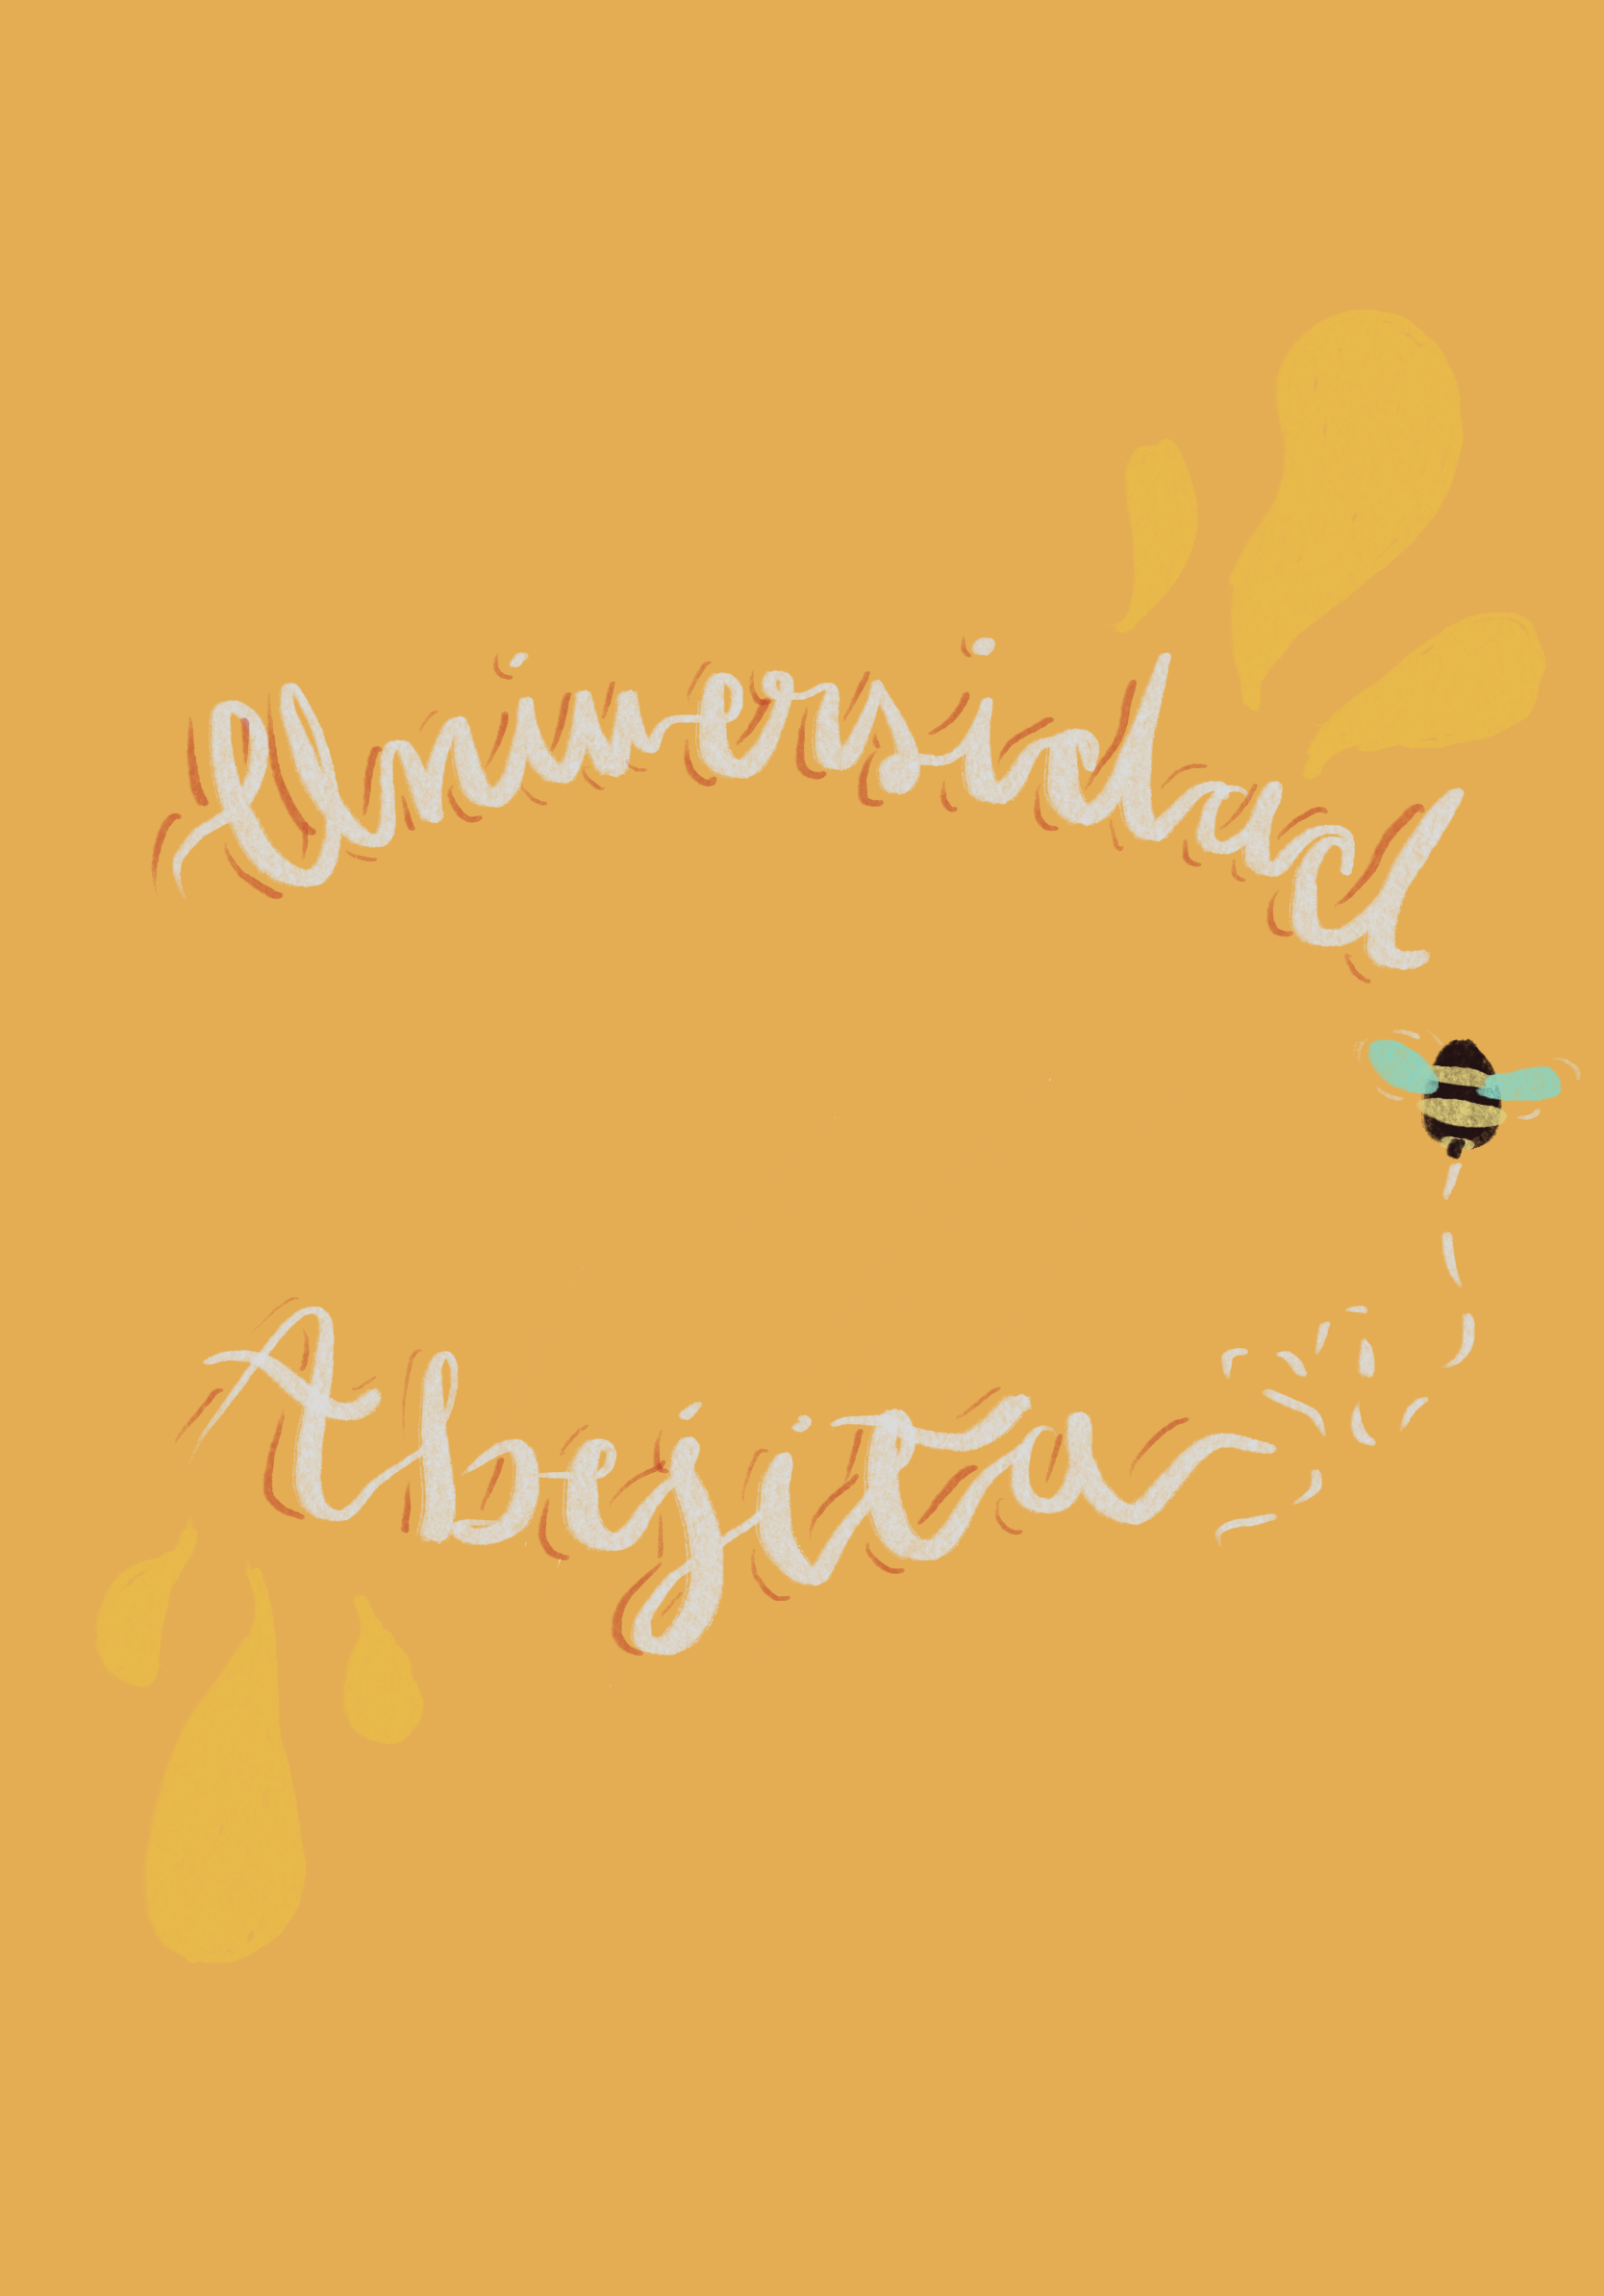 Universidad
Abejita